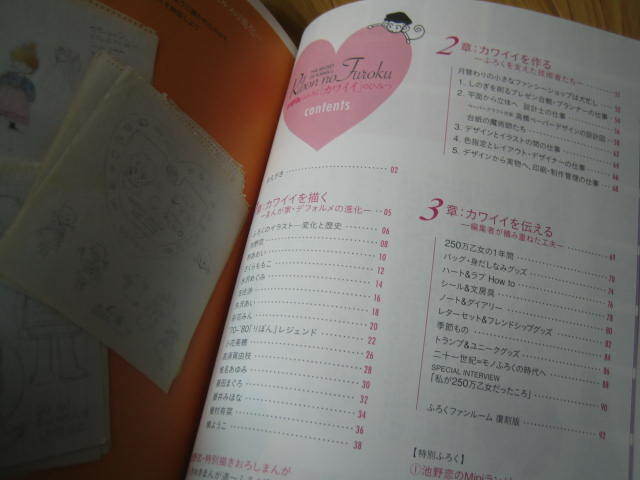 Ribon no Furoku
「カワイイ」のひみつ
contents
まえがき 02
章:カワイイを描く
―まんが家・デフォルメの進化― 05
ふろくのイラスト―変化と歴史 06
08
10
さくらももこ 12
水沢めぐみ 14
16
矢沢あい 18
谷花みん 20
'70~'80「りぼん」レジェンド 22
小花美穂 26
高須賀由枝 28
椎名あゆみ 30
藤田まぐろ 32
亜月みほな 34
種村有菜 36
槙ようこ 38
特別描きおろしまんが
2章:カワイイを作る
―ふろくを支えた技術者たち―
月替わりの小さなファンシーショップは大忙し
1. しのぎを削るプレゼン合戦・プランナーの仕事
2. 平面から立体へ 設計士の仕事
高橋ペーパーデザインの設計図
台紙の魔術師たち
3. デザインとイラストの間の仕事
4. 色指定とレイアウト・デザイナーの仕事
5. デザインから実物へ、印刷・制作管理の仕事
3章:カワイイを伝える
―編集者が積み重ねた工夫―
250万乙女の1年間
バッグ・身だしなみグッズ
ハート&ラブ How to
シール&文房具
ノート&ダイアリー
レターセット&フレンドシップグッズ
季節もの
トランプ&ユニークグッズ
二十一世紀=モノふろくの時代へ
SPECIAL INTERVIEW
「私が250万乙女だったころ」 90
ふろくファンルーム 復刻版 92
【特別ふろく】
①池野恋のMini